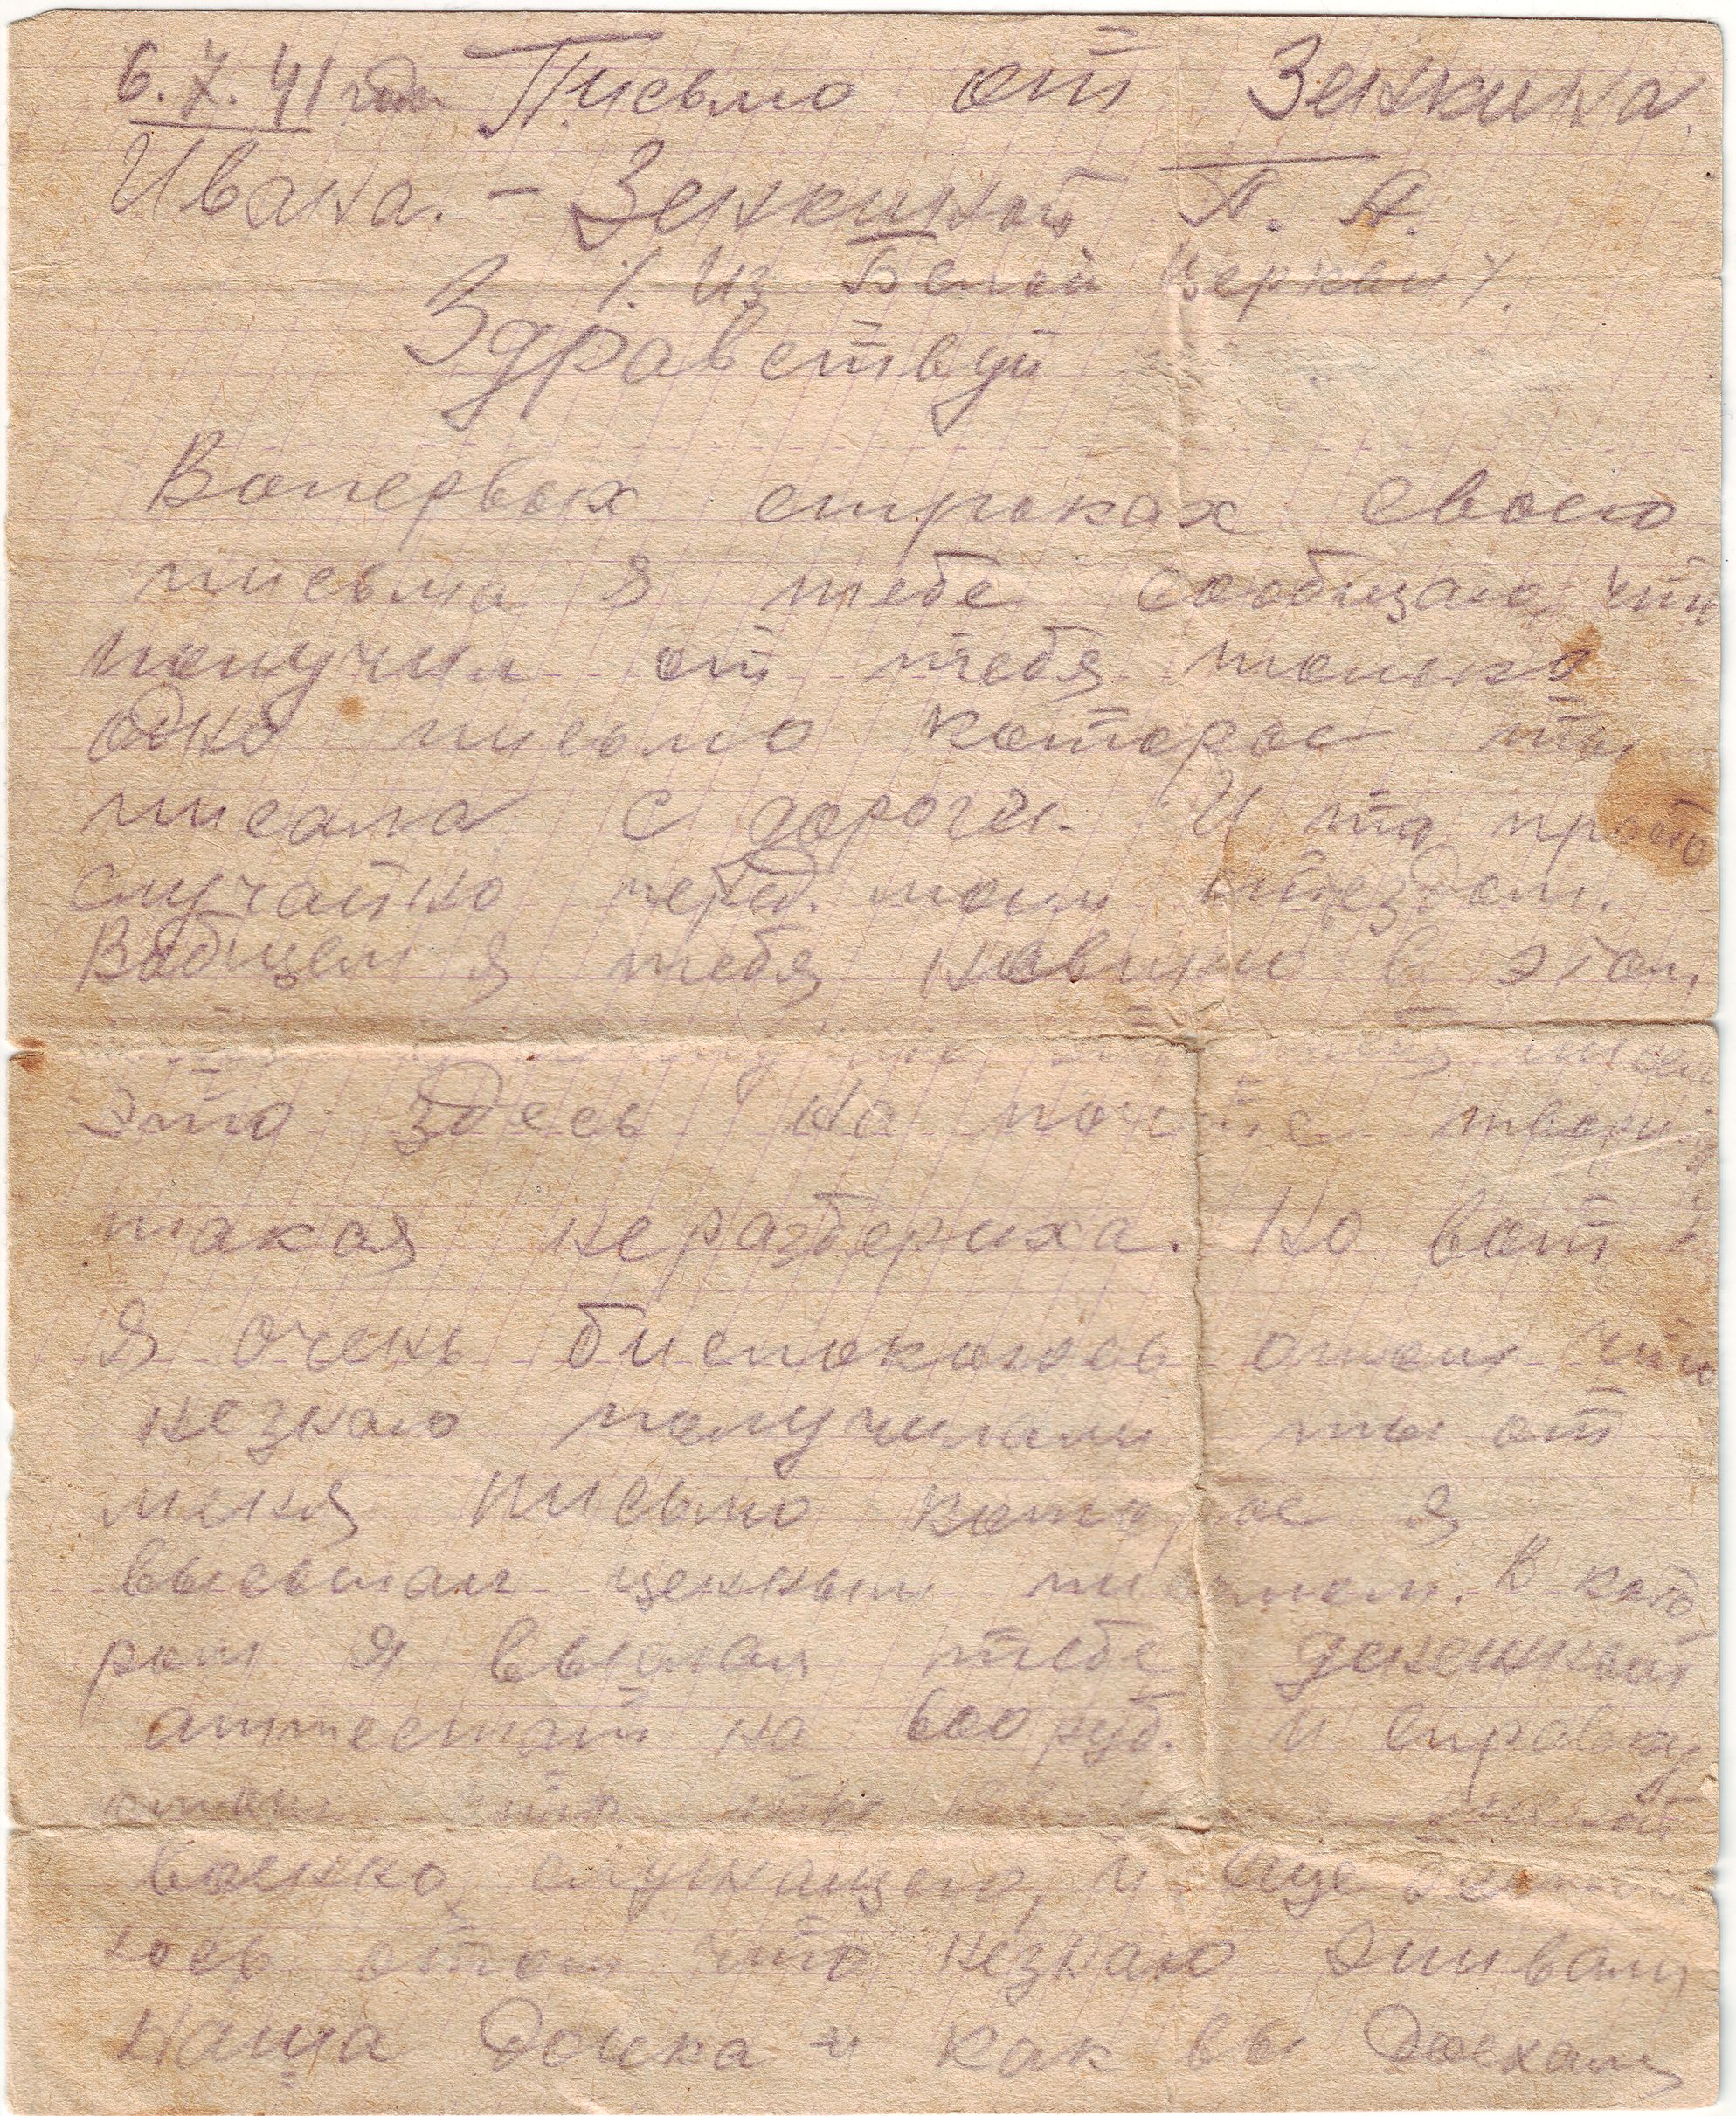 6.7.41 года Письмо от Зенкина
Ивана. – Зенкиной П. А.
/. Из Белой Церкви /.
Здравствуй
Вопервых строках своего
письма я тебе сообщаю, что
получил от тебя только
одно письмо которое ты
писала с дороги. И то просто
случайно перед. моим отъездом.
Вобщем я тебя невиню в этом
это здесь на почте
такая неразбериха. Но вот
Я очень биспокоюсь отом что
незнаю получилали ты от
меня письмо которое я
высылал ценным письмом. В кото
ром я выслал тебе денежный
аттестат на 600 руб. и справку
отом что ты
военно служащего, и еще
юсь отом что незнаю
наша дочка и как вы доехали